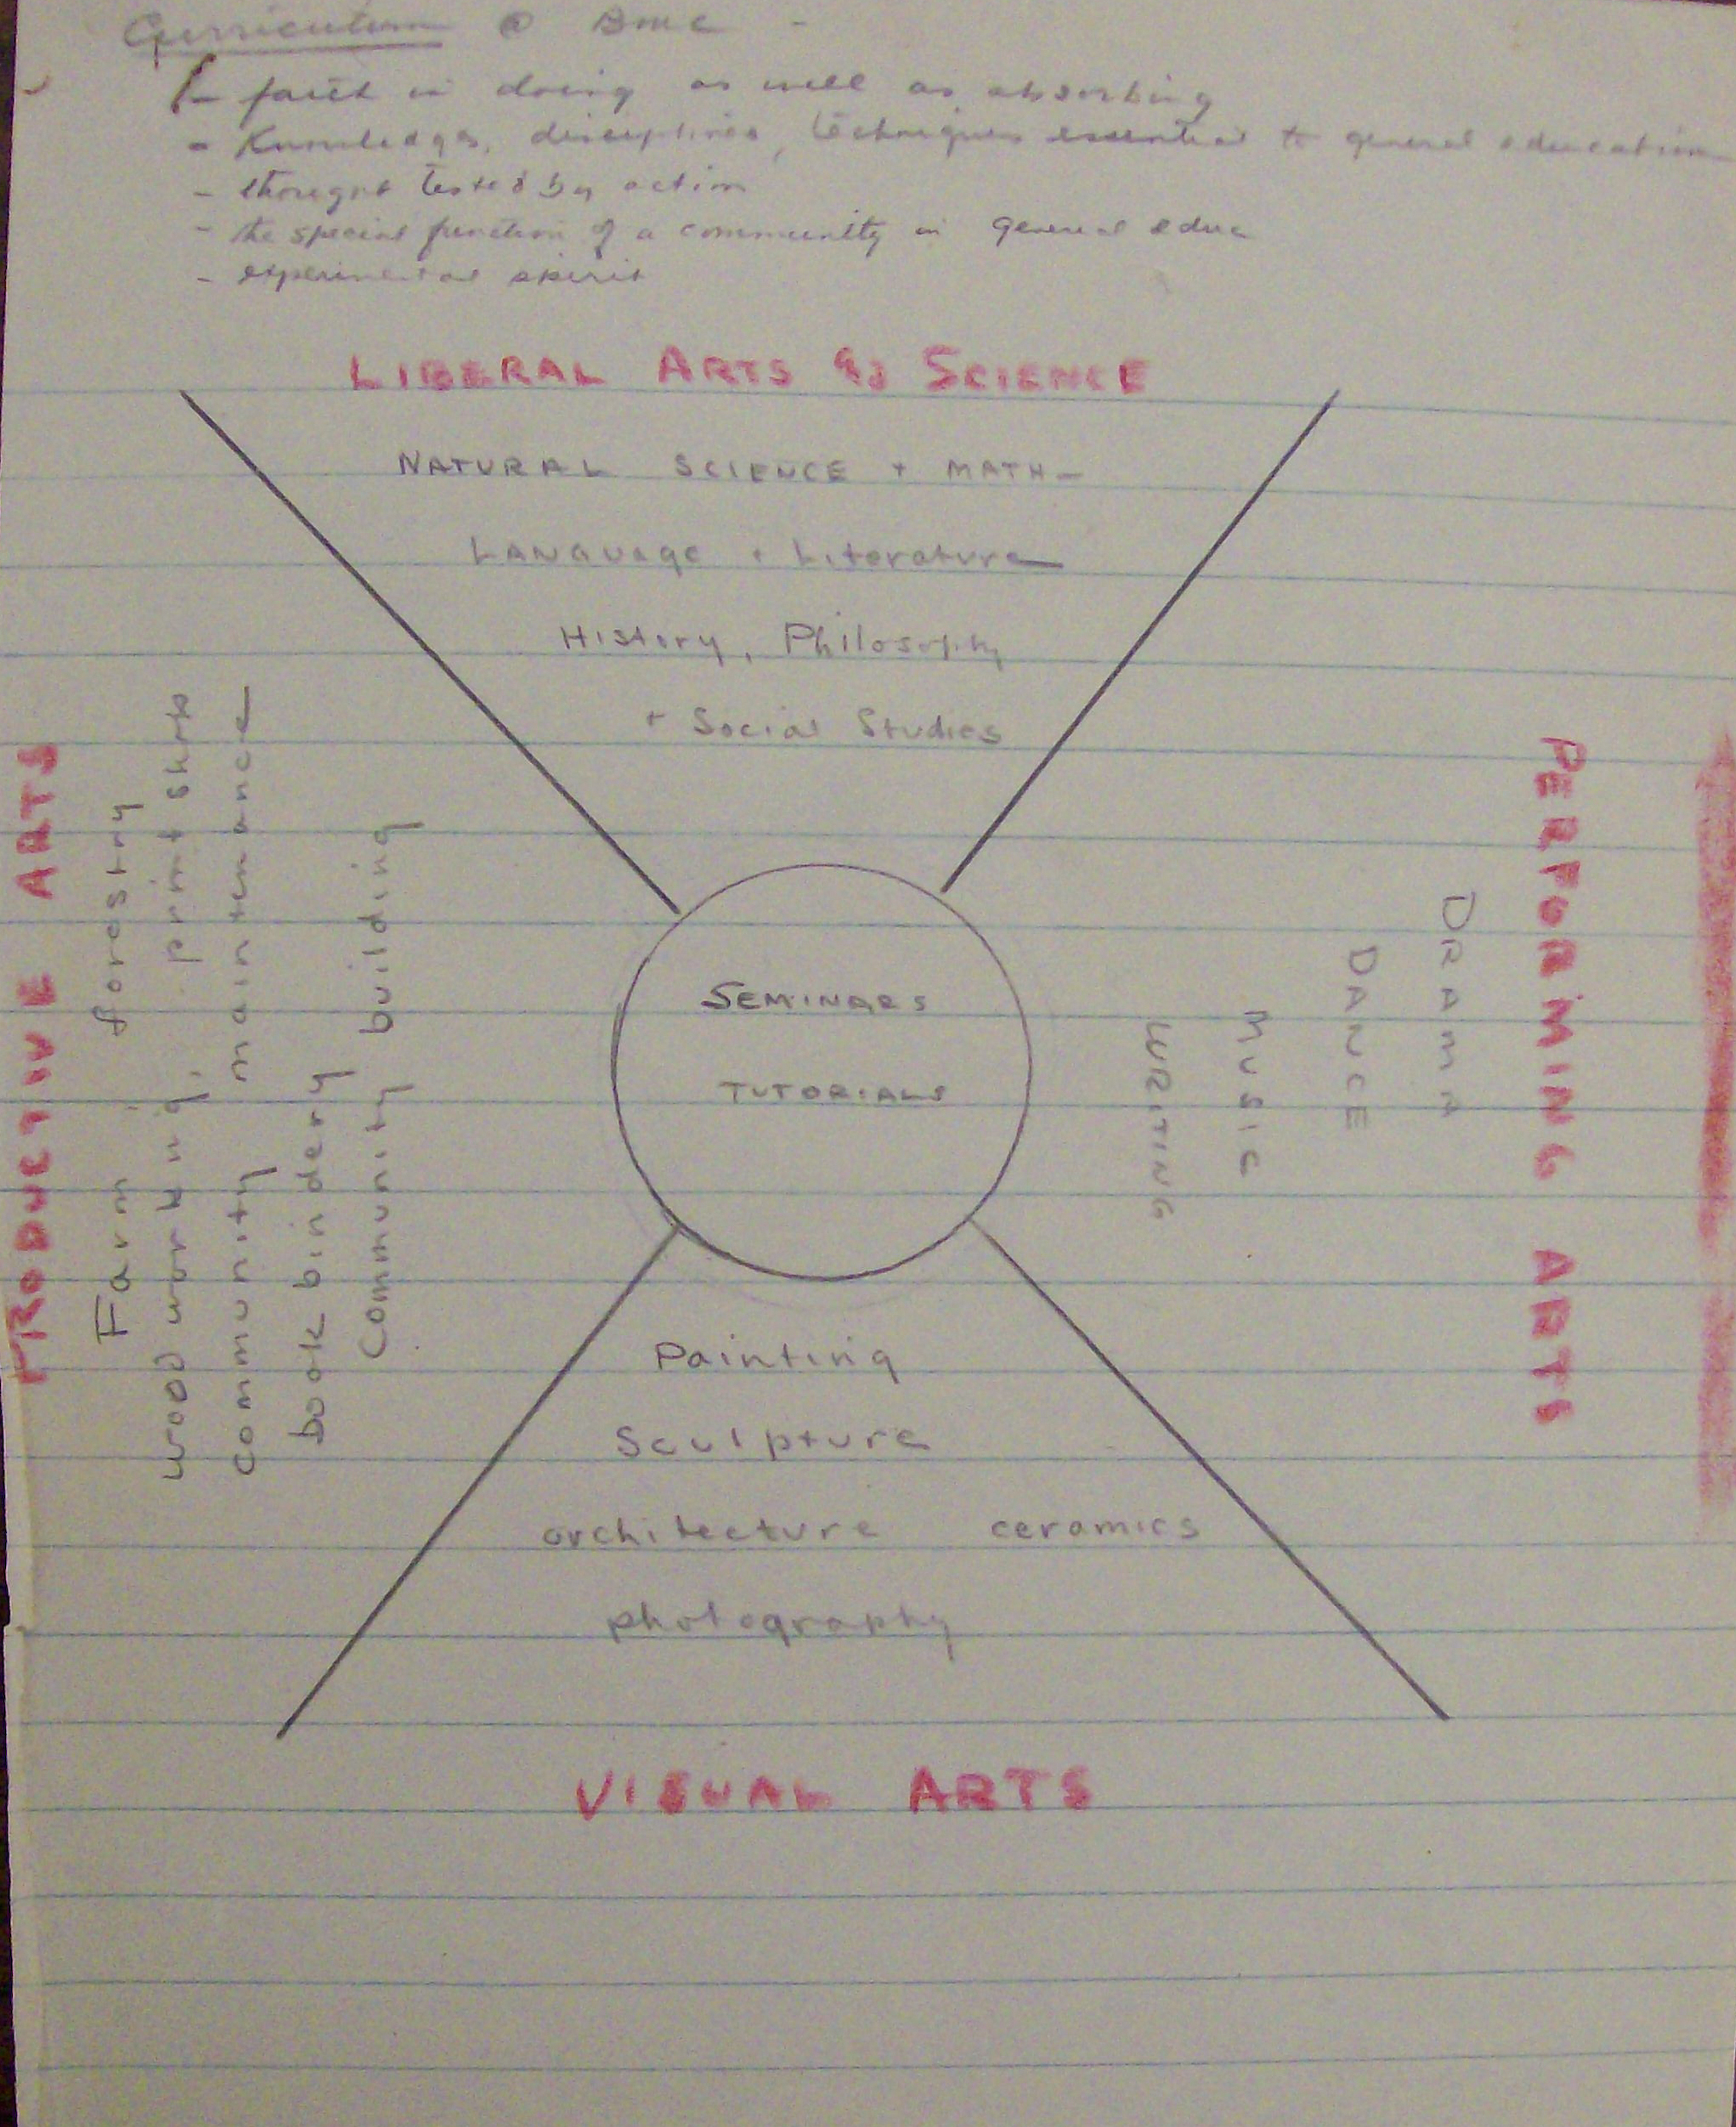 Curriculum @ BMC -
- faith in doing as well as absorbing
- Knowledges, disciplines, techniques essential to general education
- thought tested by action
- the special function of a community in general educ
- experimental spirit
LIBERAL ARTS & SCIENCE
NATURAL SCIENCE + MATH -
LANGUAGE + Literature
HIStory, Philosophy
+ Social Studies
PRODUCTIVE ARTS
Farm forestry
wood working, print shop
community maintenance
book bindery
Community building
SEMINARS
TUTORIALS
PERFORMING ARTS
DRAMA
DANCE
MUSIC
WRITING
Painting
Sculpture
architecture ceramics
photography
VISUAL ARTS